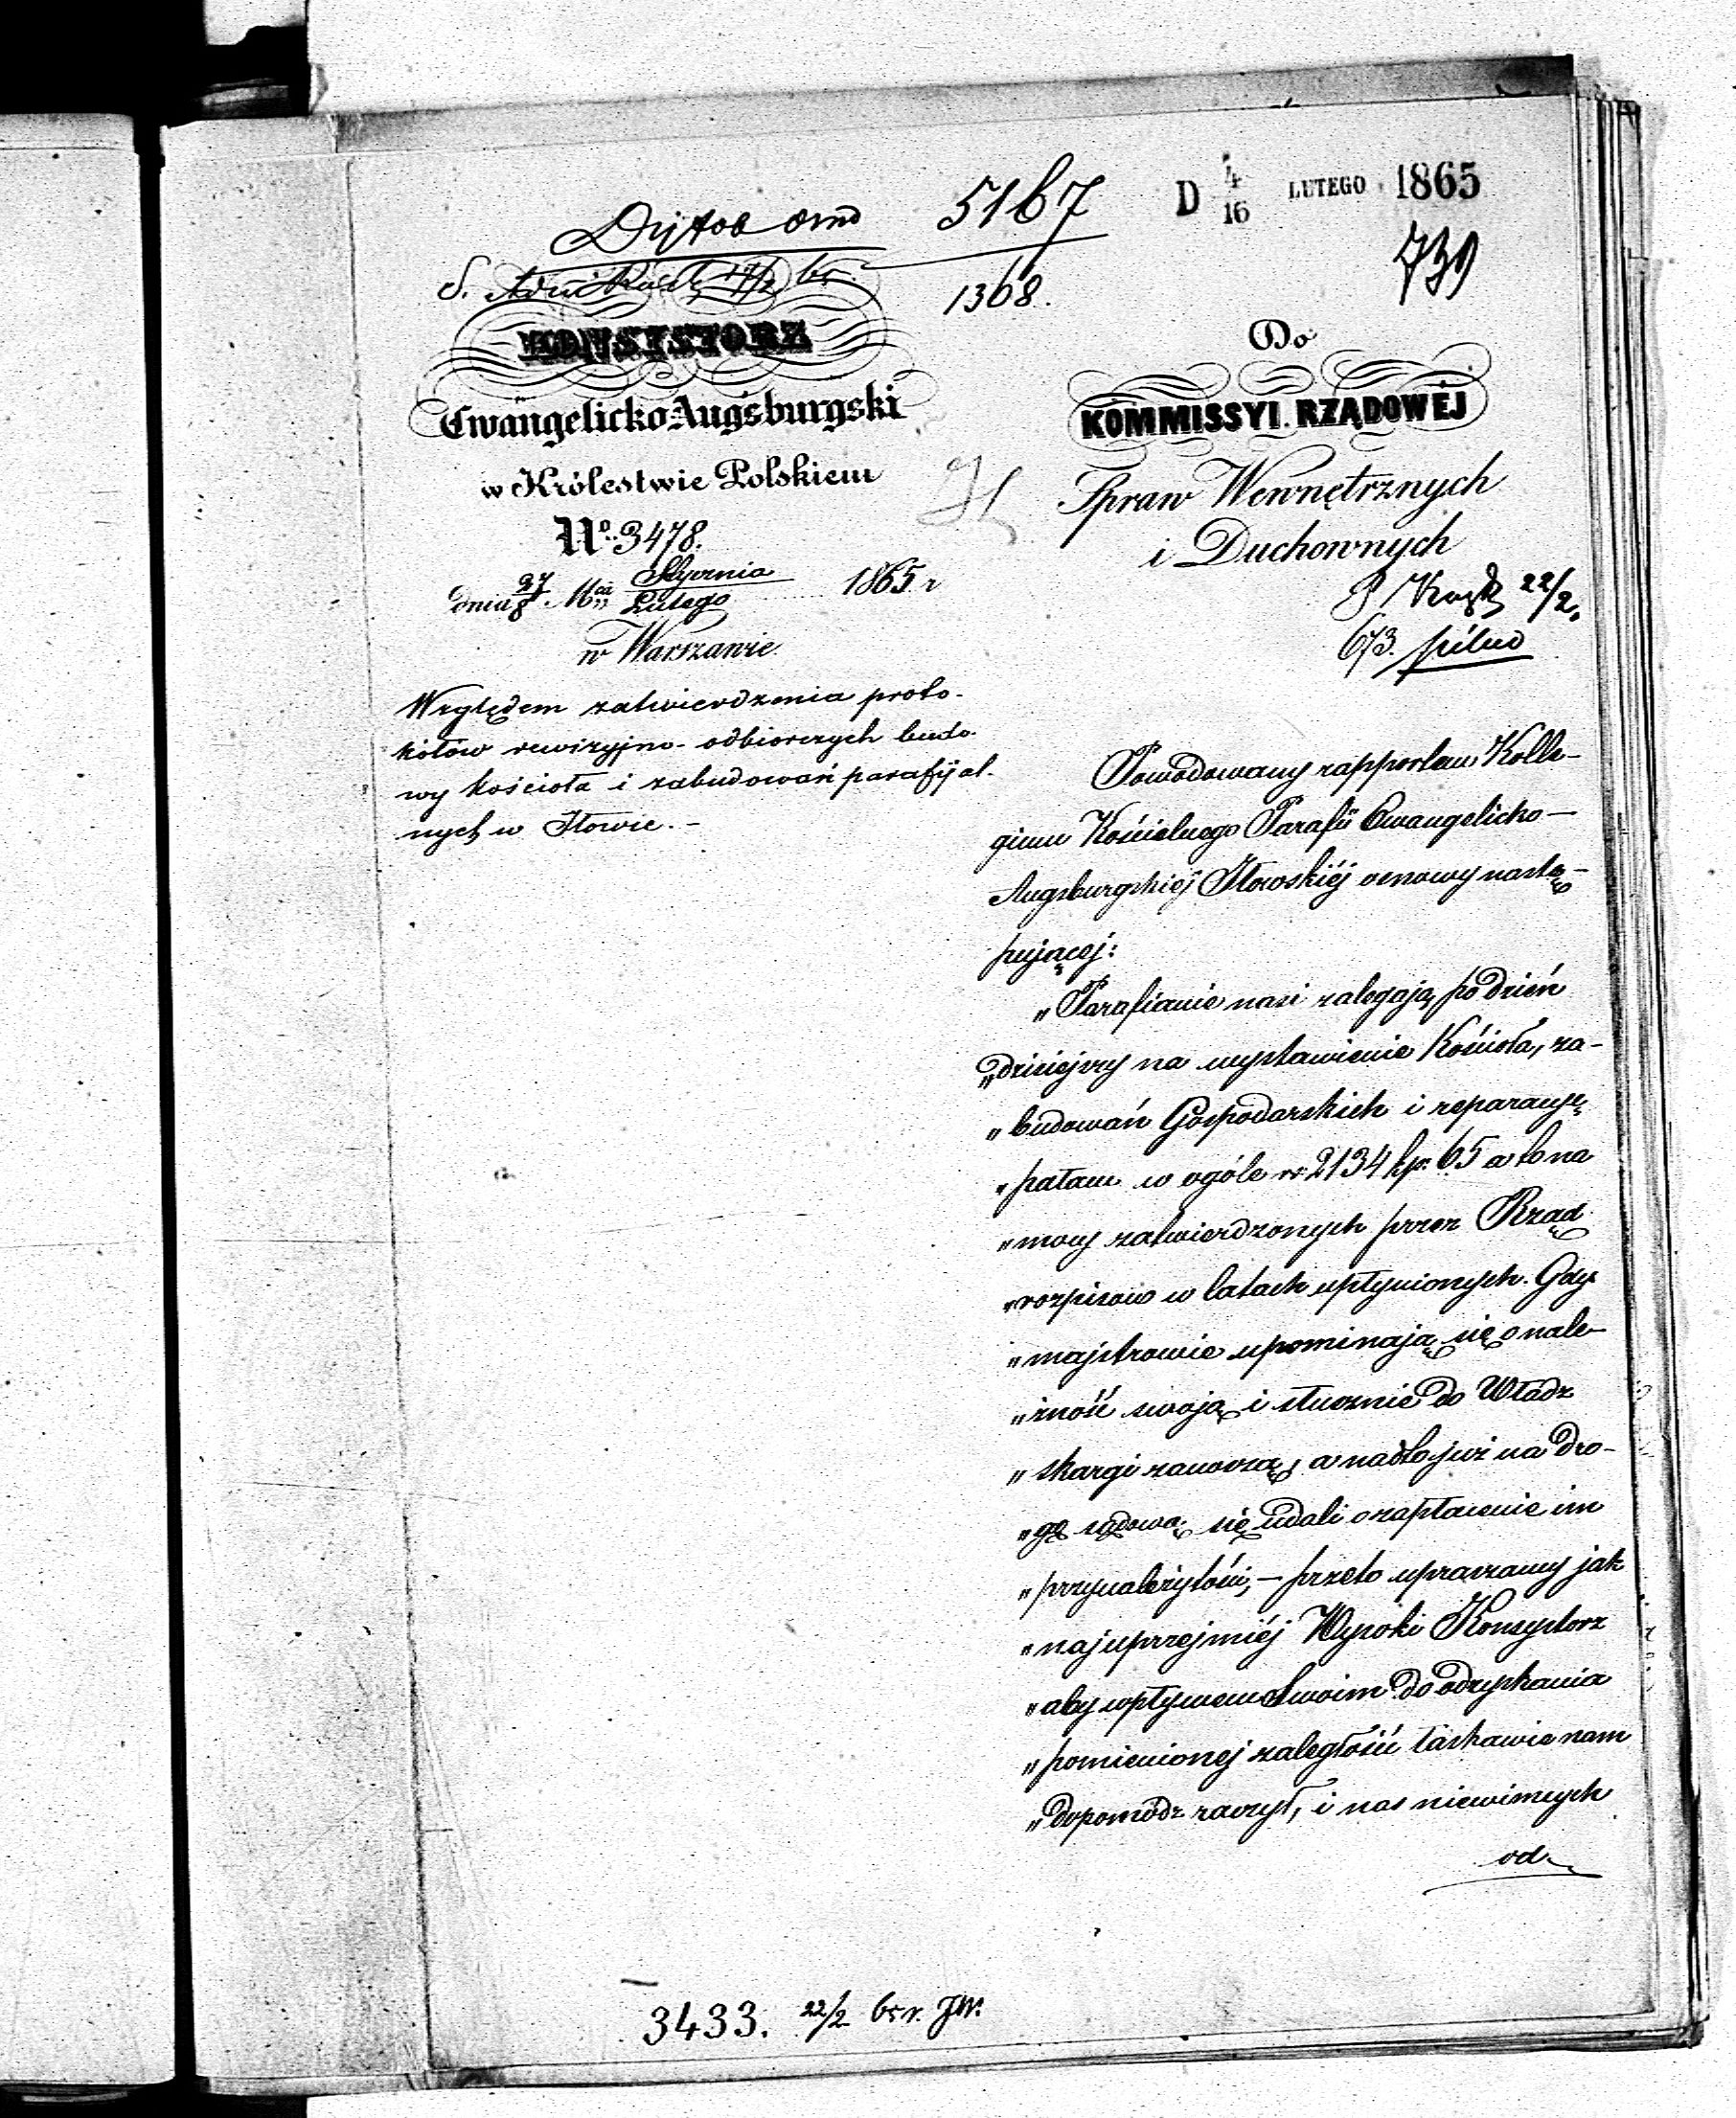 5167
1368.
D 4/16 LUTEGO 1865
739
KONSYSTORZ
Ewangelicko Augsburgski
w Królestwie Polskiem
No. 3478.
dnia 27/8 Mca Stycznia/Lutego 1865 r
w Warszawie
Względem zatwierdzenia proto-
kółów rewizyjno-odbiorczych budo-
wy kościoła i zabudowań parafijal-
nych w Iłowie.-
Do
KOMMISSYI RZĄDOWEJ
Spraw Wewnętrznych
i Duchownych
22/2.
673. pilno
Powodowany rapportem Kolle-
gium Kościelnego Parafii Ewangelicko-
Augsburgskiéj Iłowskiéj osnowy nastę-
pującej:
"Parafianie nasi zalegają po dzień
"dzisiejszy na wystawienie Kościoła, za-
"budowań Gospodarskich i reparacyę
"w ogóle rs 2134 kp. 65 a to na
"mocy zatwierdzonych przez Rząd
"rozpisów w latach upłynionych. Gdy
"majstrowie upominają się o nale-
"żność swoją i słusznie do Władz
"skargi zanoszą, a nadto już na dro-
"gę sądową się udali o zapłacenie im
"przynależytości, – przeto upraszamy jak
"najuprzejmiéj Wysoki Konsystorz
"aby wpływem Swoim do odzyskania
"pomienionej zaległości łaskawie nam
"dopomódz raczył, i nas niewinnych
od
3433. 22/2 65 r. JW.